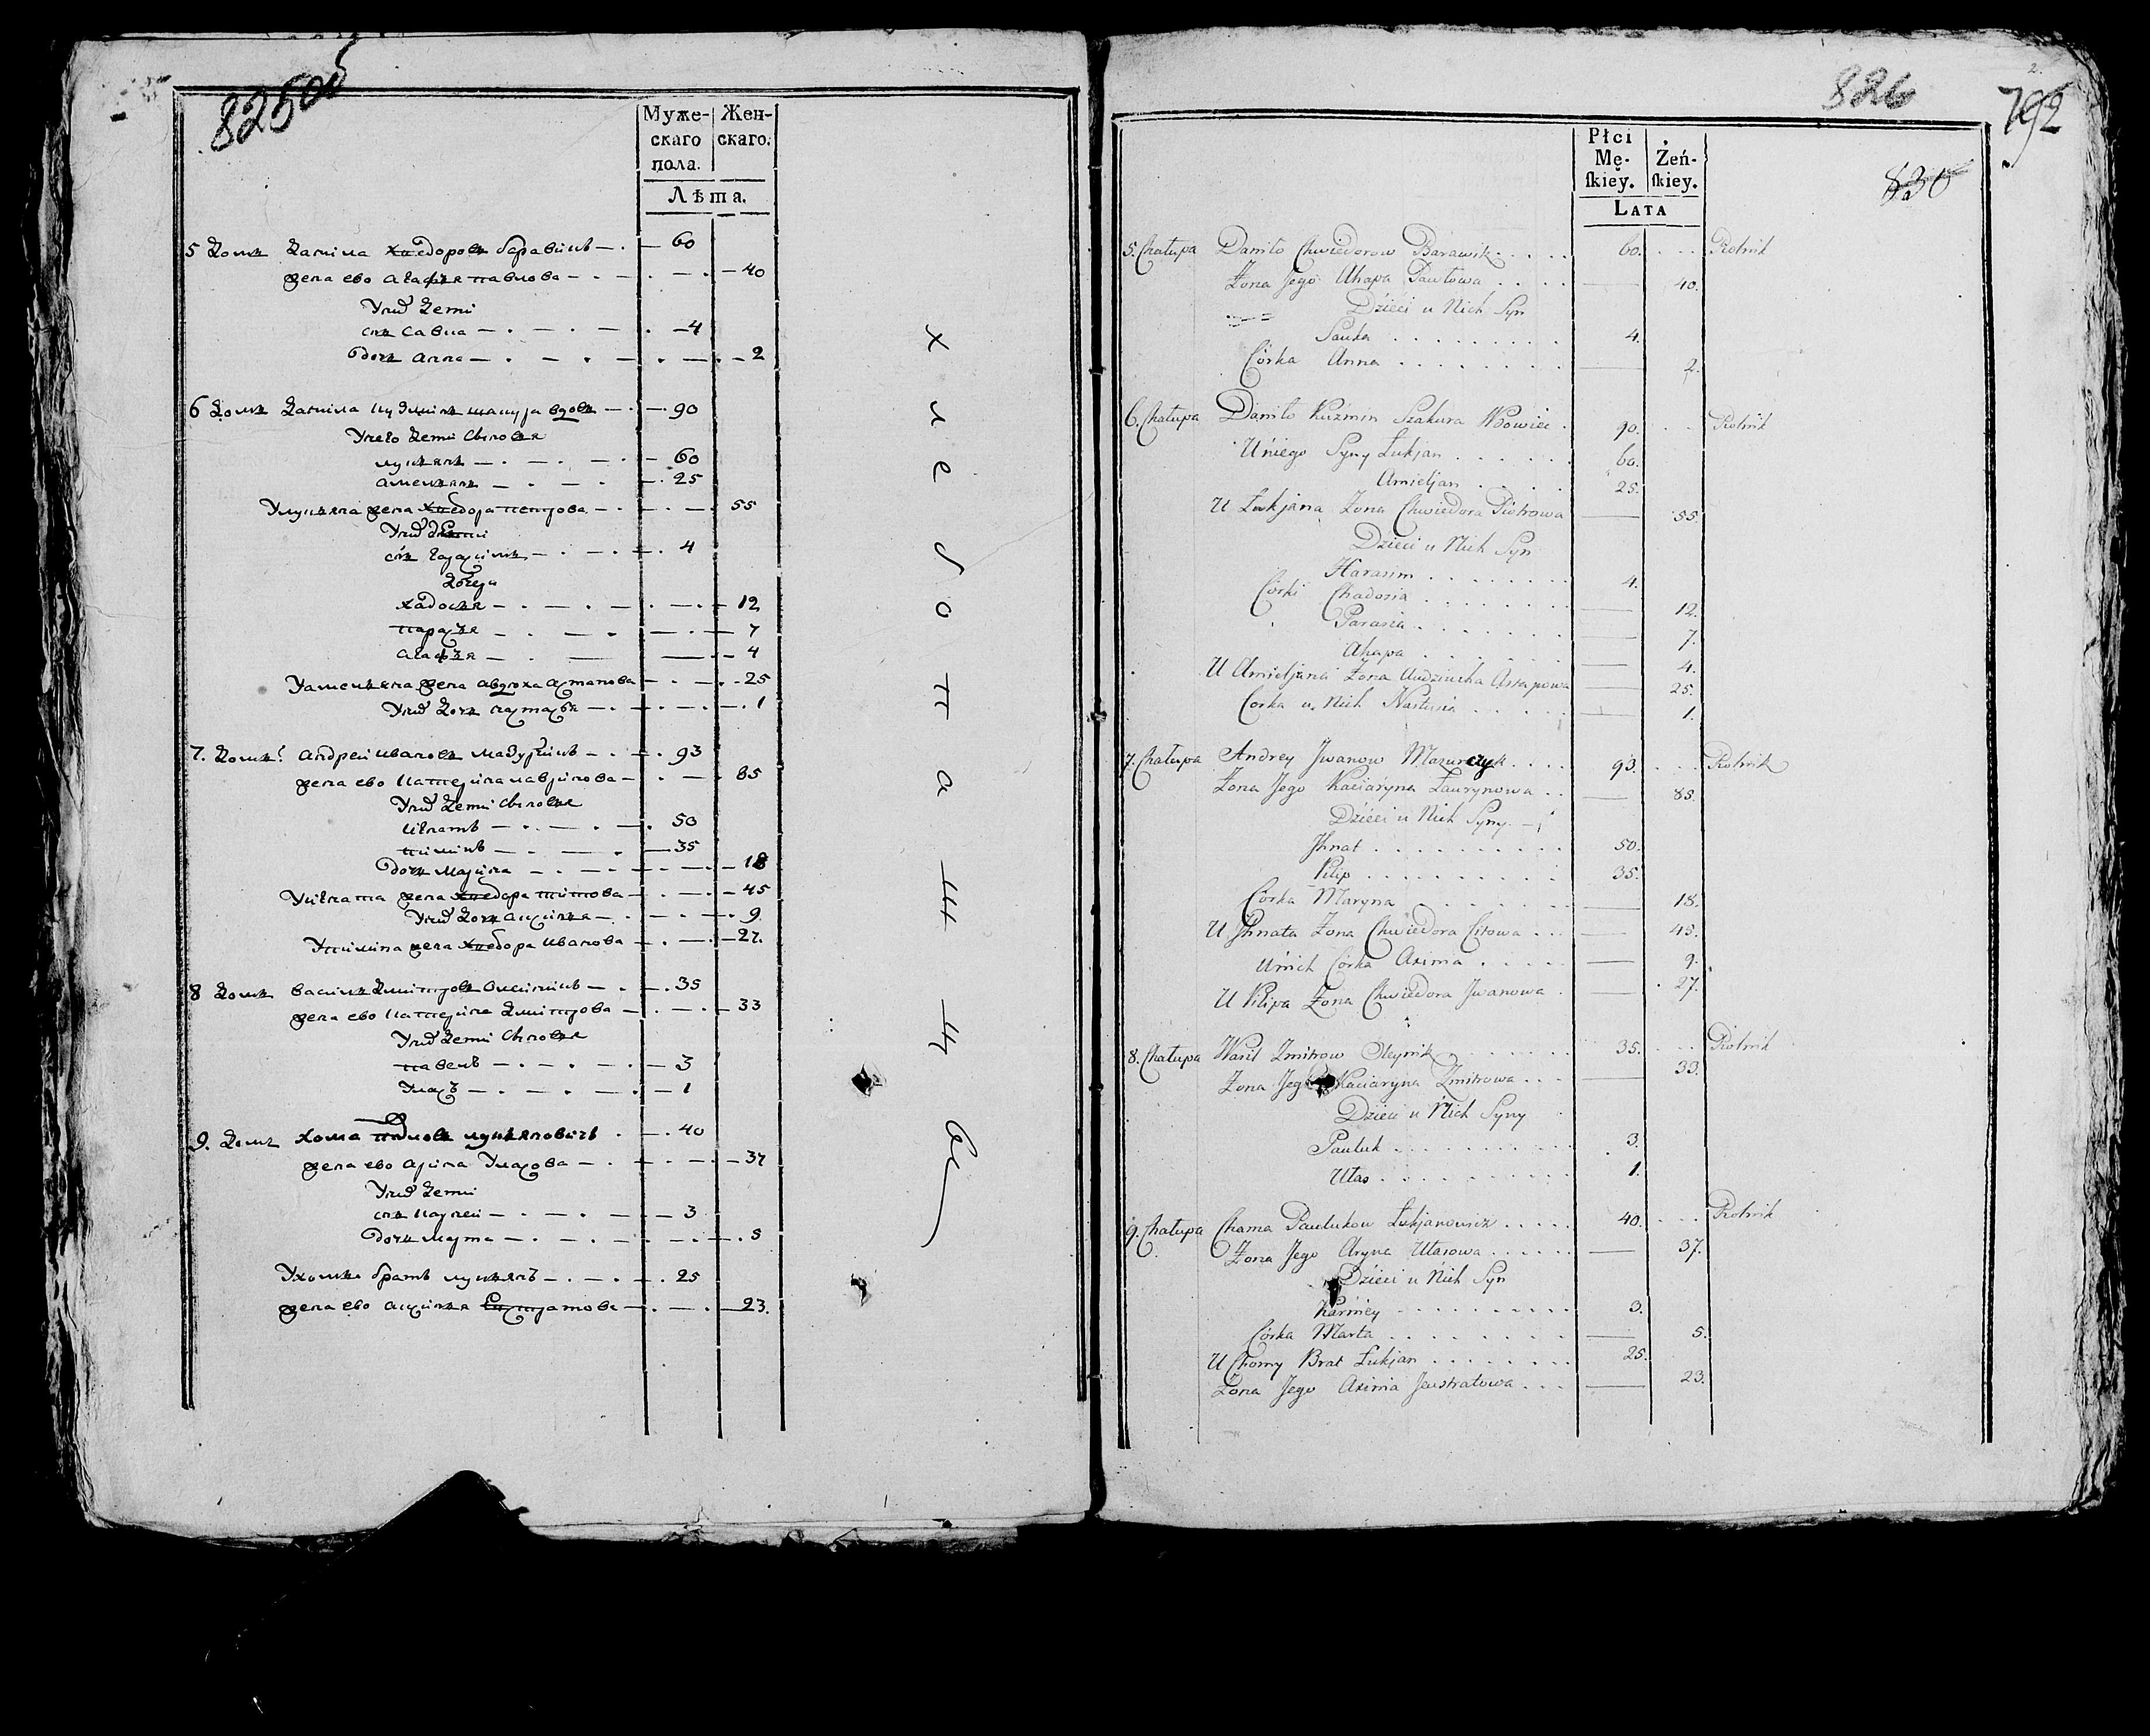 825
Муже-
скаго
пола.
Жен-
скаго.
Лѣта.
5 домъ данила хведоровъ баравикъ 60
жена ево агафья павлова 40
У них дети
снъ савка 4
дочь анна 2
6 домъ данила кузминъ шакура вдовъ 90
У него дети сыновья
лукьянъ 60
амельянъ 25
У лукьяна жена хведора петрова 55
У них дети
снъ гарасимъ 4
дочери
хадосья 12
парасья 7
агафья 4
У амельяна жена авдюха астапова 25
У них дочь настасья 1
7. домъ андрей ивановъ мазурчикъ 93
жена ево катерина лавринова 85
У них дети сыновья
игнатъ 50
пилипъ 35
дочь марина 18
У игната жена хведора титова 45
У них дочь аксинья 9
У пилипа жена хведора иванова 27.
8 домъ василь дмитровъ олейникъ 35
жена ево катерина дмитрова 33
У них дети сыновья
павелъ 3
Уласъ 1
9. домъ хома павловъ лукьяновичъ 40
жена ево арина Уласова 37
У них дети
снъ карней 3
дочь марта 5
У хомы братъ лукьянъ 25
жена ево аксинья Евстратова 23.
хлебопашцы
826
2.
792
830
Płci
Mę-
skiey.
Żeń-
skiey.
LATA
5. Chałupa Daniło Chwiedorow Barawik 60. Rolnik
Żona Jego Ahapa Pautowa 40.
Dzieci u Nich Syn
Sauka 4.
Córka Anna 2.
6. Chałupa Daniło Kuźmin Szakura Wdowiec 90. Rolnik
U niego Syny Łukjan 60.
Amieljan 25.
U Łukjana Żona Chwiedora Piotrowa 55.
Dzieci u Nich Syn
Harasim 4.
Córki Chadosia 12.
Parasia 7.
Ahapa 4.
U Amieljana Żona Audziucha Astapowa 25.
Corka u Nich Nastusia 1.
7. Chałupa Andrey Jwanow Mazurczyk 93. Rolnik
Żona Jego Kaciaryna Łaurynowa 85.
Dzieci u Nich Syny
Jhnat 50.
Pilip 35.
Córka Maryna 18.
U Jhnata Żona Chwiedora Citowa 45.
U nich Córka Axima 9.
U Pilipa Żona Chwiedora Jwanowa 27.
8. Chałupa Wasil Zmitrow Oleynik 35. Rolnik
Żona Jego Kaciaryna Zmitrowa 33.
Dzieci u Nich Syny
Pauluk 3.
Ułas 1.
9. Chałupa Chama Paulukow Łukjanowicz 40. Rolnik
Żona Jego Aryna Ułasowa 37.
Dzieci u Nich Syn
Karniey 3.
Córka Marta 5.
U Chomy Brat Łukjan 25.
Żona Jego Axinia Jeustratowa 23.